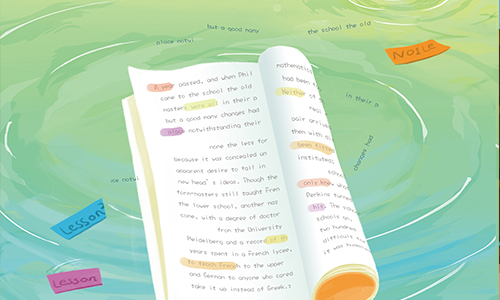 but a good many
the school the old
place notwi
Noile
A year passed, and when Phil
came to the school the old
masters were all in their p
but a good many changes had
place notwithstanding their
none the less for
because it was concealed un
apparent desire to fall in
new head's ideas. Though the
formmasters still taught Fren
the lower school, another mas
come, with a degree of doctor
from the University
Heidelberg and a record of th
years spent in a French lycee,
to teach French to the upper
and German to anyone who cared
take it up instead of Greek.
mathematic
had been e
Neither of
real
pair arrive
them with di
been fitted
institutes.
only know, whe
Perkins turned
his. The scho
schools on,
two hundred
difficult
it was humane
in their p
changes had
ace notwi
Lesson
Lesson